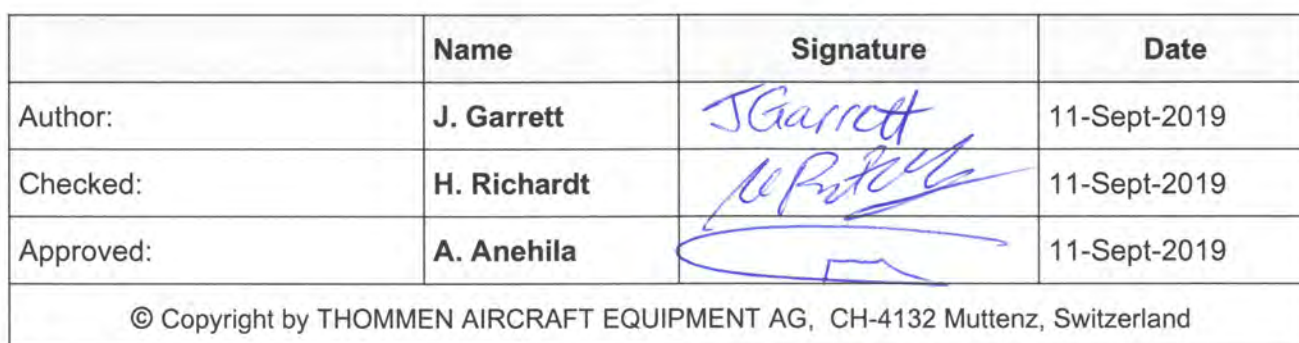 Name Signature Date
Author: J. Garrett JGarrett 11-Sept-2019
Checked: H. Richardt 11-Sept-2019
Approved: A. Anehila 11-Sept-2019
© Copyright by THOMMEN AIRCRAFT EQUIPMENT AG, CH-4132 Muttenz, Switzerland